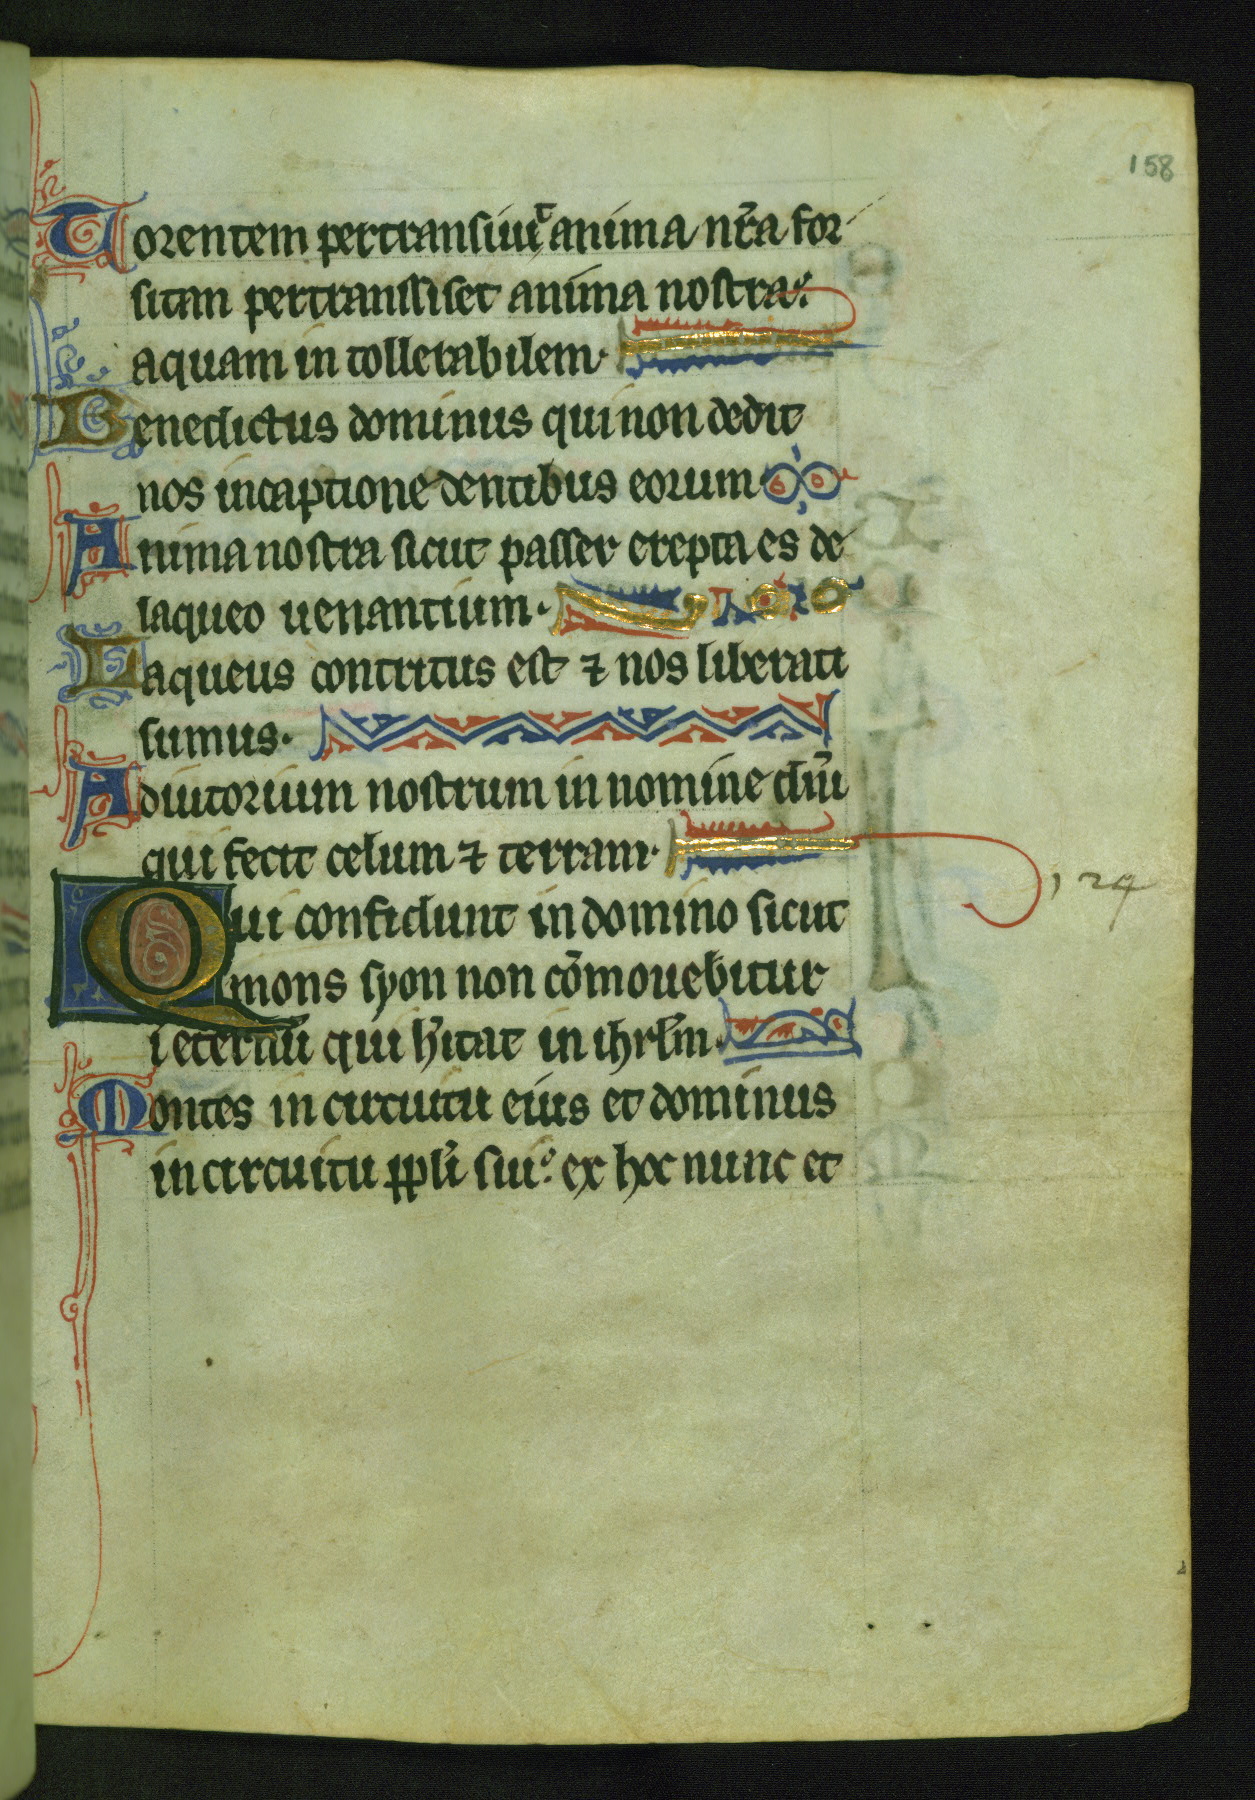 158
Torentem pertransiuit anima nr̃a for
sitan pertranssiset anima nostra:
aquam in tollerabilem·
Benedictus dominus qui non dedit
nos incaptione dentibus eorum
Anima nostra sicut passer erepta es de
laqueo uenantium·
Laqueus contritus est ⁊ nos liberati
sumus·
Adiutorium nostrum in nomine dñi
qui fecit celum ⁊ terram·
Qui confidunt in domino sicut
mons syon non cõmouebitur
ĩ eternũ qui h̃itat in ihrl̃m·
Montes in circuitu eius et dominus
in circuitu ppl̃i sui: ex hoc nunc et
124